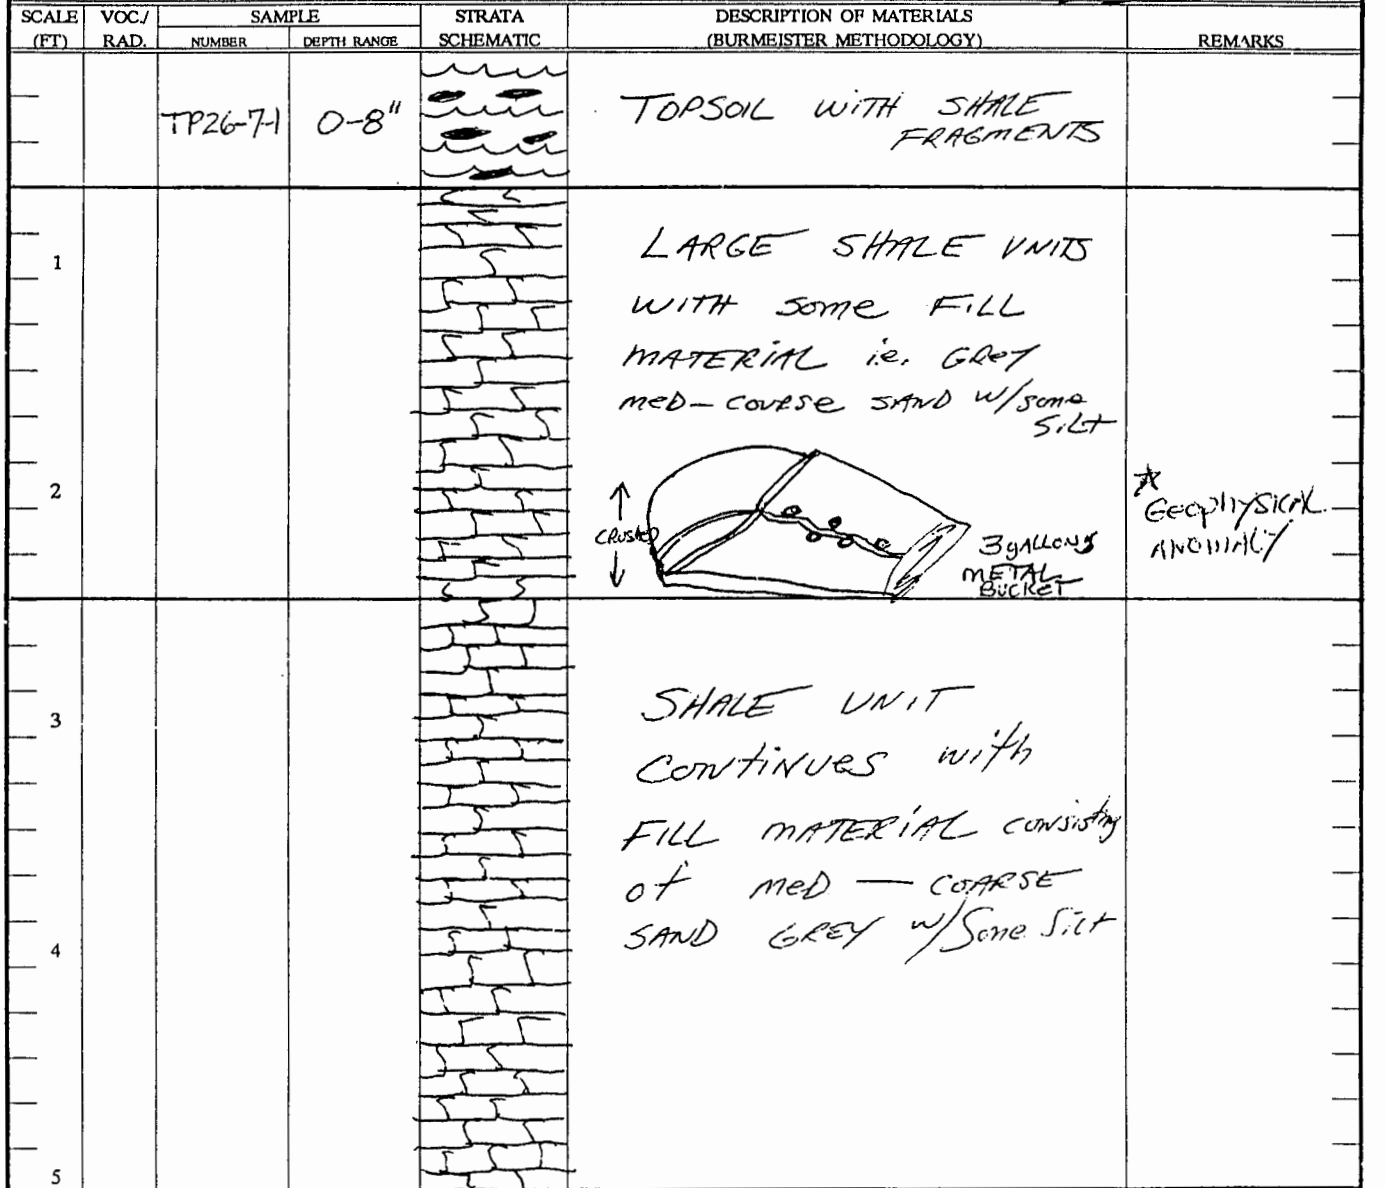 SCALE VOC./ SAMPLE STRATA DESCRIPTION OF MATERIALS
(FT) RAD. NUMBER DEPTH RANGE SCHEMATIC (BURMEISTER METHODOLOGY) REMARKS
TP26-7-1 0-8" TOPSOIL WITH SHALE
FRAGMENTS
1
LARGE SHALE UNITS
WITH some FILL
MATERIAL i.e. GREY
MED-COURSE SAND W/some
SILT
2
CRUSHED
3 GALLONS
METAL
BUCKET
GeophysicAL
ANOMALY
3
SHALE UNIT
CONTINUES with
FILL MATERIAL consisting
of MED — COARSE
SAND GREY w/Some Silt
4
5